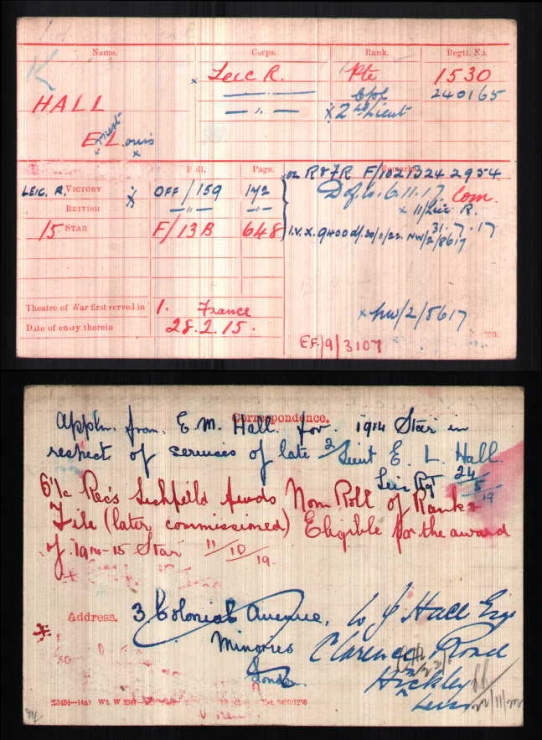 Name. Corps. Rank. Regtl. No.
K
HALL
Ernest Louis
x Leic R. Pte 1530
— " — Cpl 240165
x 2nd Lieut
Roll. Page. Remarks.
on R & F R F/102B24 2954
LEIC. R. VICTORY OFF/159 142
BRITISH — " — — " —
D of W. 6.11.17 Com.
x 11/Leic R.
31.7.17
15 STAR F/13B 648
I.V.X. 9400 d/. NW/2/8617
Theatre of War first served in 1. France
Date of entry therein 28.2.15.
x NW/2/5617
EF/9/3107
Correspondence.
Appln. from E. M. Hall for 1914 Star in
respect of services of late 2 Lieut E. L. Hall
Leic Rgt 24/5/19
O i/c Rec's Lichfield fwds Nom Roll of Rank &
File (later commissioned) Eligible for the award
of 1914-15 Star 11/10/19.
Address. 3 Colonial Avenue,
Minories
London
W J Hall Esq
Clarence Road
Hinckley
Leics